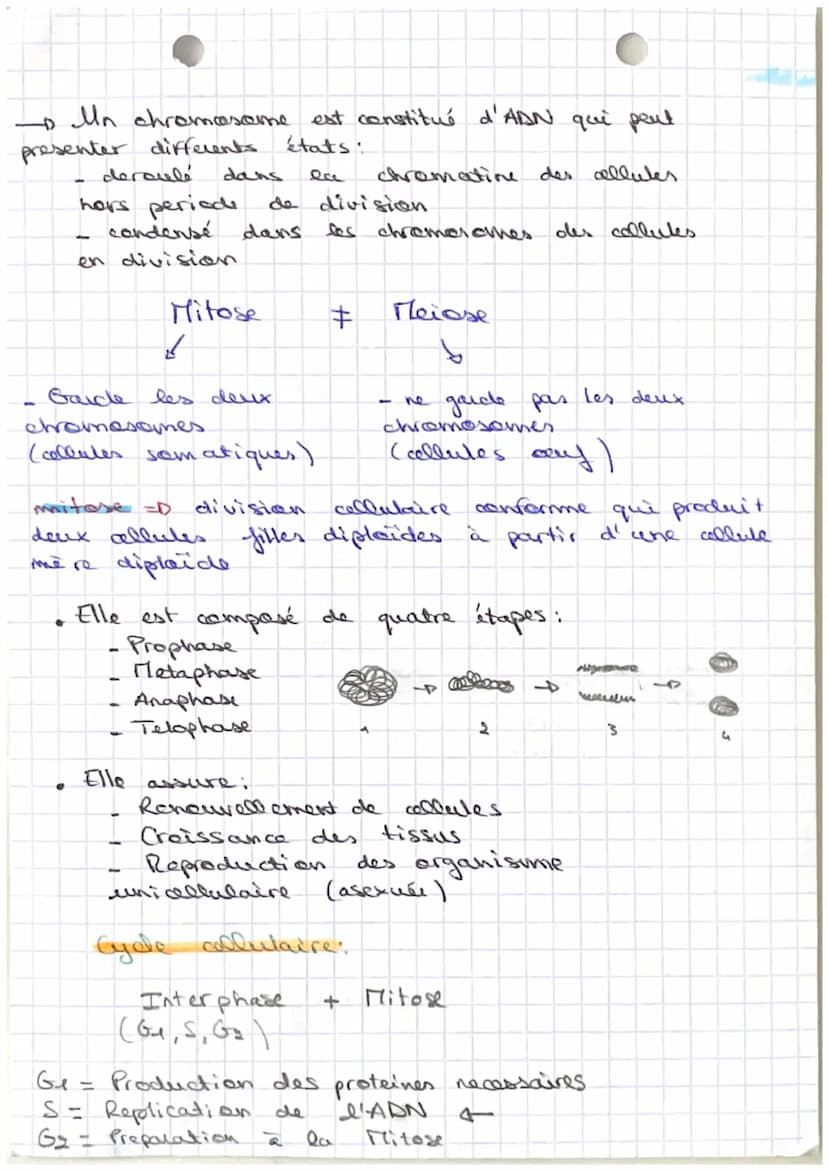 → Un chromosome est constitué d'ADN qui peut
presenter differents états:
- deroulé dans la chromatine des cellules
hors periode de division
- condensé dans les chromosomes des cellules
en division
Mitose ≠ Meiose
↙ ↘
- Garde les deux - ne garde pas les deux
chromosomes chromosomes
(cellules somatiques) (cellules œuf)
mitose => division cellulaire conforme qui produit
deux cellules filles diploïdes à partir d'une cellule
mère diploïde
• Elle est composé de quatre étapes:
- Prophase
- Metaphase
- Anaphase
- Telophase
1 2 3 4
• Elle assure:
- Renouvellement de cellules
- Croissance des tissus
- Reproduction des organisme
unicellulaire (asexuée)
Cycle cellulaire:
Interphase + Mitose
(G1, S, G2)
G1 = Production des proteines necessaires
S = Replication de l'ADN ←
G2 = Preparation à la Mitose